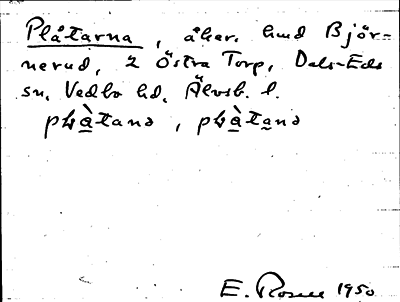 Plåtarna, åker. hmd Björ-
nerud, 2 Östra Torp, Dals-Eds
sn, Vedbo hd, Älvsb. l.
plàtana, plàtana
E. Rosell 1950